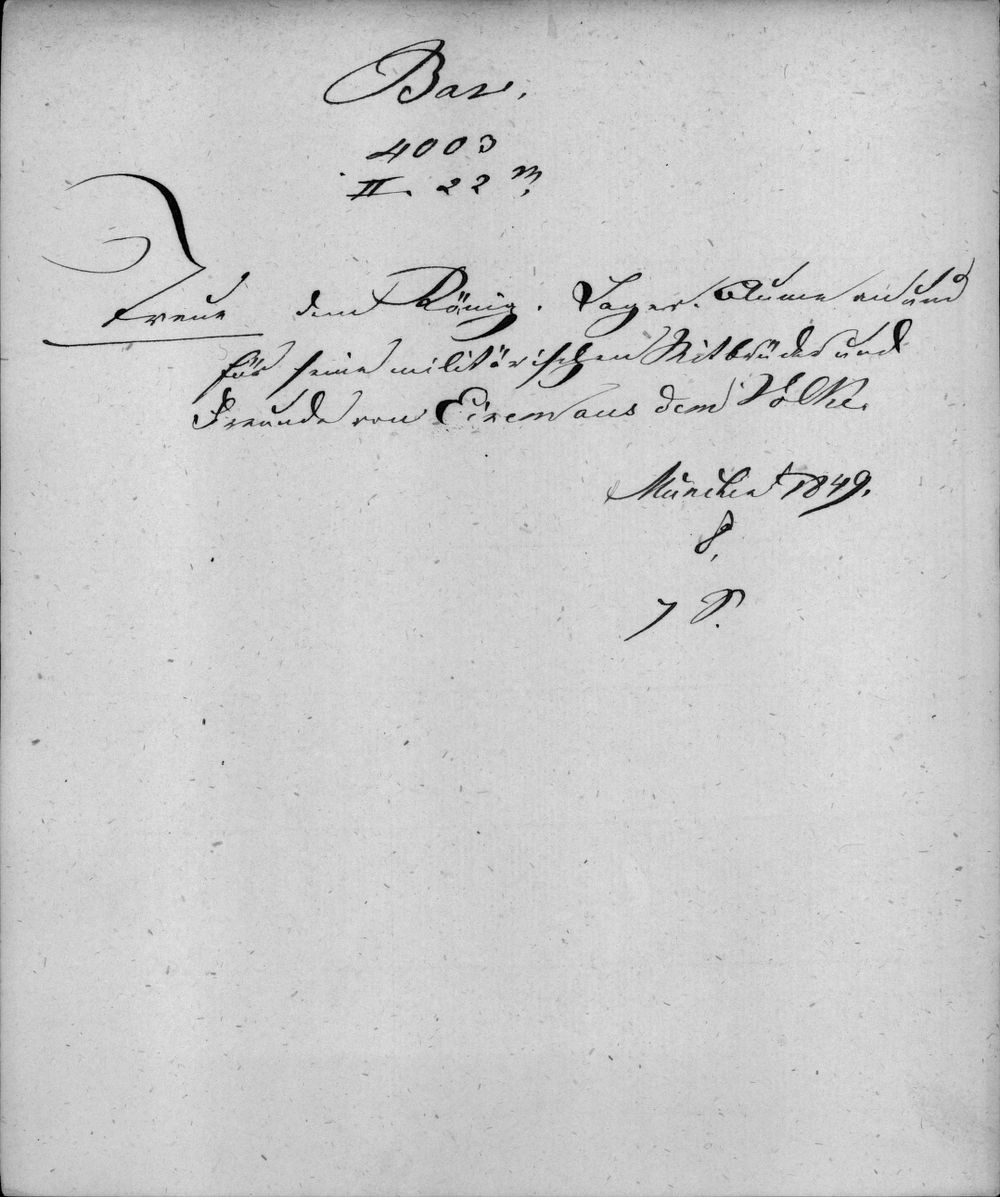 Bav.
4003
II. 22 m.
Treue dem König. Lager-Blume an und
für seine militärischen Mitbrüder und
Freunde von Einem aus dem Volke.
München 1849.
8.
7 S.